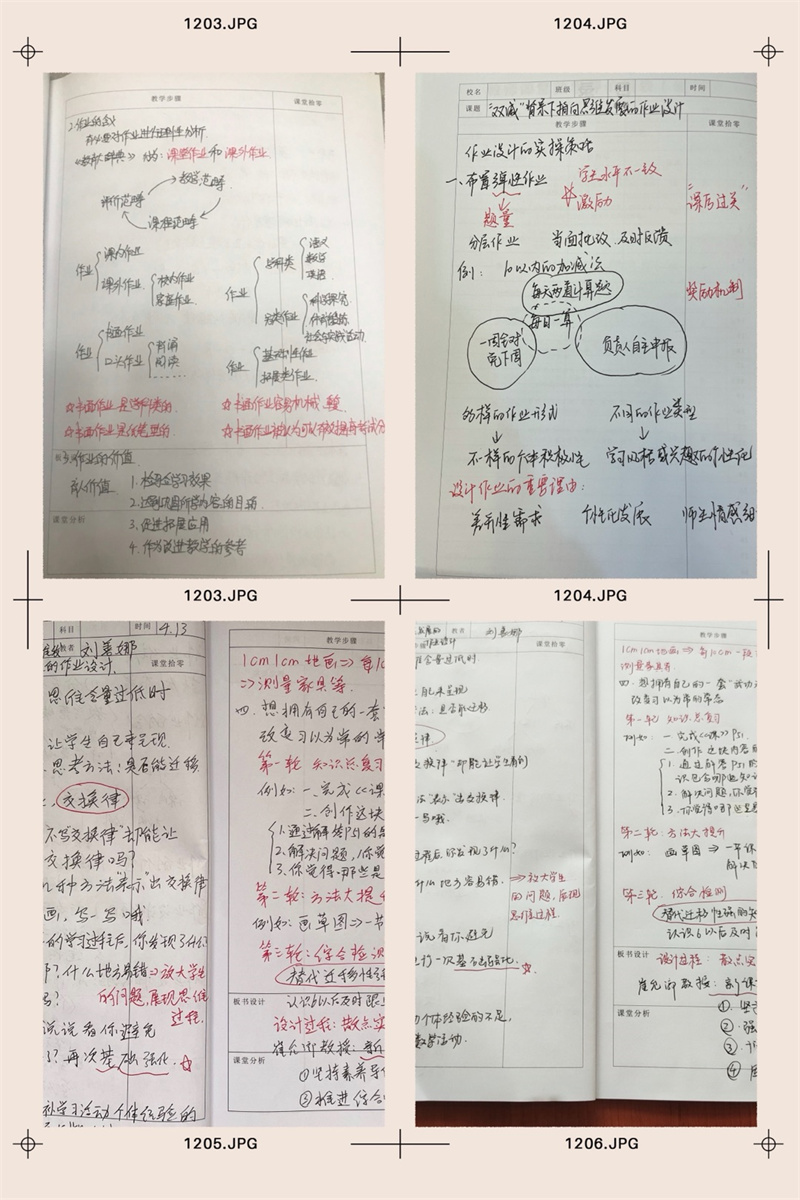 1203.JPG
1204.JPG
教学步骤
课堂拾零
2.作业的含义
有必要对作业进行
《教育辞典》 分为：课堂作业和课外作业
教学范畴
评价范畴
课程范畴
作业
课内作业
课外作业
校内作业
家庭作业
作业
学科类
语文
数学
英语
另类作业
科学探究
体育锻炼
社会与实践活动
作业
书面作业
口头作业
背诵
阅读
作业
基础性作业
拓展类作业
☆书面作业是学科类的
☆书面作业容易机械、重复
☆书面作业是
☆书面作业被认为可以有效提高考试分
作业的价值
价值
1. 检验学习效果
2. 达到巩固所学内容的目的
3. 促进拓展应用
4. 作为改进教学的参考
课堂分析
校名
班级
科目
时间
课题
“双减”背景下指向思维发展的作业设计
教学步骤
课堂拾零
作业设计的实操策略
一、布置弹性作业
学生水平不一致
激励
题量
“课后过关”
分层作业 当面批改、及时反馈
例： 10以内的加减法
奖励机制
每天两道计算题
每日一算
一周全对
免下周
负责人自主申报
多样的作业形式
不同的作业类型
不一样的个体积极性
学习风格
设计作业的重要理由：
差异性需求
个性化发展
师生情感
1203.JPG
1204.JPG
科目
时间 4.13
教者
的作业设计.
课堂拾零
思维含量过低时
让学生自己来呈现.
思考方法：是否能迁移
交换律
不写“交换律”却能让
交换律吗？
几种方法“表示”出交换律
画，写一写哦.
的学习过程后，你发现了什么
什么地方易错⇒放大学生
的问题，展现思维
过程.
说说看你避免
？再次 强化. ☆
补学习活动个体经验的
教学步骤
1cm 1cm地画⇒每1c
⇒测量家具等.
四. 想拥有自己的一套“
改复习以为常的常
第一轮 知识总复习
例如：一.完成《课
二.创作这块
1.通过解答PSI的
2.解决问题，你觉
3.你觉得哪些是
第二轮：方法大提升
例如：画草图⇒一节
第三轮：综合检测
替代迁移性强
认识6以后及时跟
板书设计
设计过程：散点实
崔允漷教授：新
课堂分析
①坚持素养导
②推进综合
教者
课堂拾零
含量过低时.
来呈现
法：是否能迁移
交换律”却能让学生看到
法“表示”出交换律.
写哦.
过程后你发现了什么？
什么地方容易错. ⇒放大学生
的问题，展现
思维过程.
说看你避免
☆
个体经验的不足，
数学活动.
教学步骤
1cm 1cm地画⇒每1cm一段
测量家具等
四. 想拥有自己的一套“
改复习以为常的常态
第一轮 知识总复习
例如：一.完成《课》PSI.
二.创作这块内容
1. 通过解答PSI的
识包含哪些知识
2. 解决问题，你觉
3. 你觉得哪些是
第二轮：方法大提升
例如： 画草图⇒一节课
解决
第三轮. 综合检测
替代迁移性强的
认识6以后及时
板书设计
设计过程： 散点实
崔允漷教授：新课
课堂分析
①. 坚
②. 强
③.
④
1205.JPG
1206.JPG